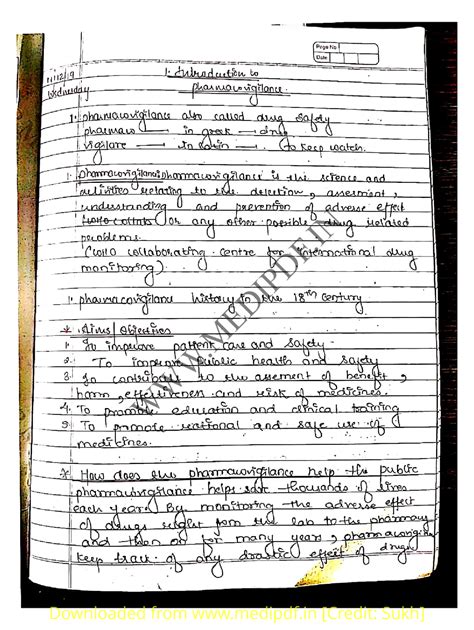 Page No
Date
11/12/19
Wednesday
1. Introduction to
pharmacovigilance
1. pharmacovigilance also called drug safety
pharmaco → in greek → drug
vigilare → in latin → to keep watch.
1. pharmacovigilance: pharmacovigilance is the science and
activities relating to the detection, assesment,
understanding and prevention of adverse effect
or any other possible drug related
problems.
(WHO collaborating centre for international drug
monitoring)
1. pharmacovigilance history in the 18th century
* Aims/Objectives
1. To improve patient care and safety
2. To improve public health and safety
3. To contribute to the assesment of benefit,
harm, effectiveness and risk of medicines.
4. To promote education and clinical training
5. To promote rational and safe use of
medicines.
* How does the pharmacovigilance help the public
pharmacovigilance helps save thousands of lives
each year by monitoring the adverse effect
of drugs right from the lab to the pharmacy
and then on for many years, pharmacovigilance
keep track of any drastic effect of drugs
WWW.MEDIPDF.IN
Downloaded from www.medipdf.in [Credit: Sukh]